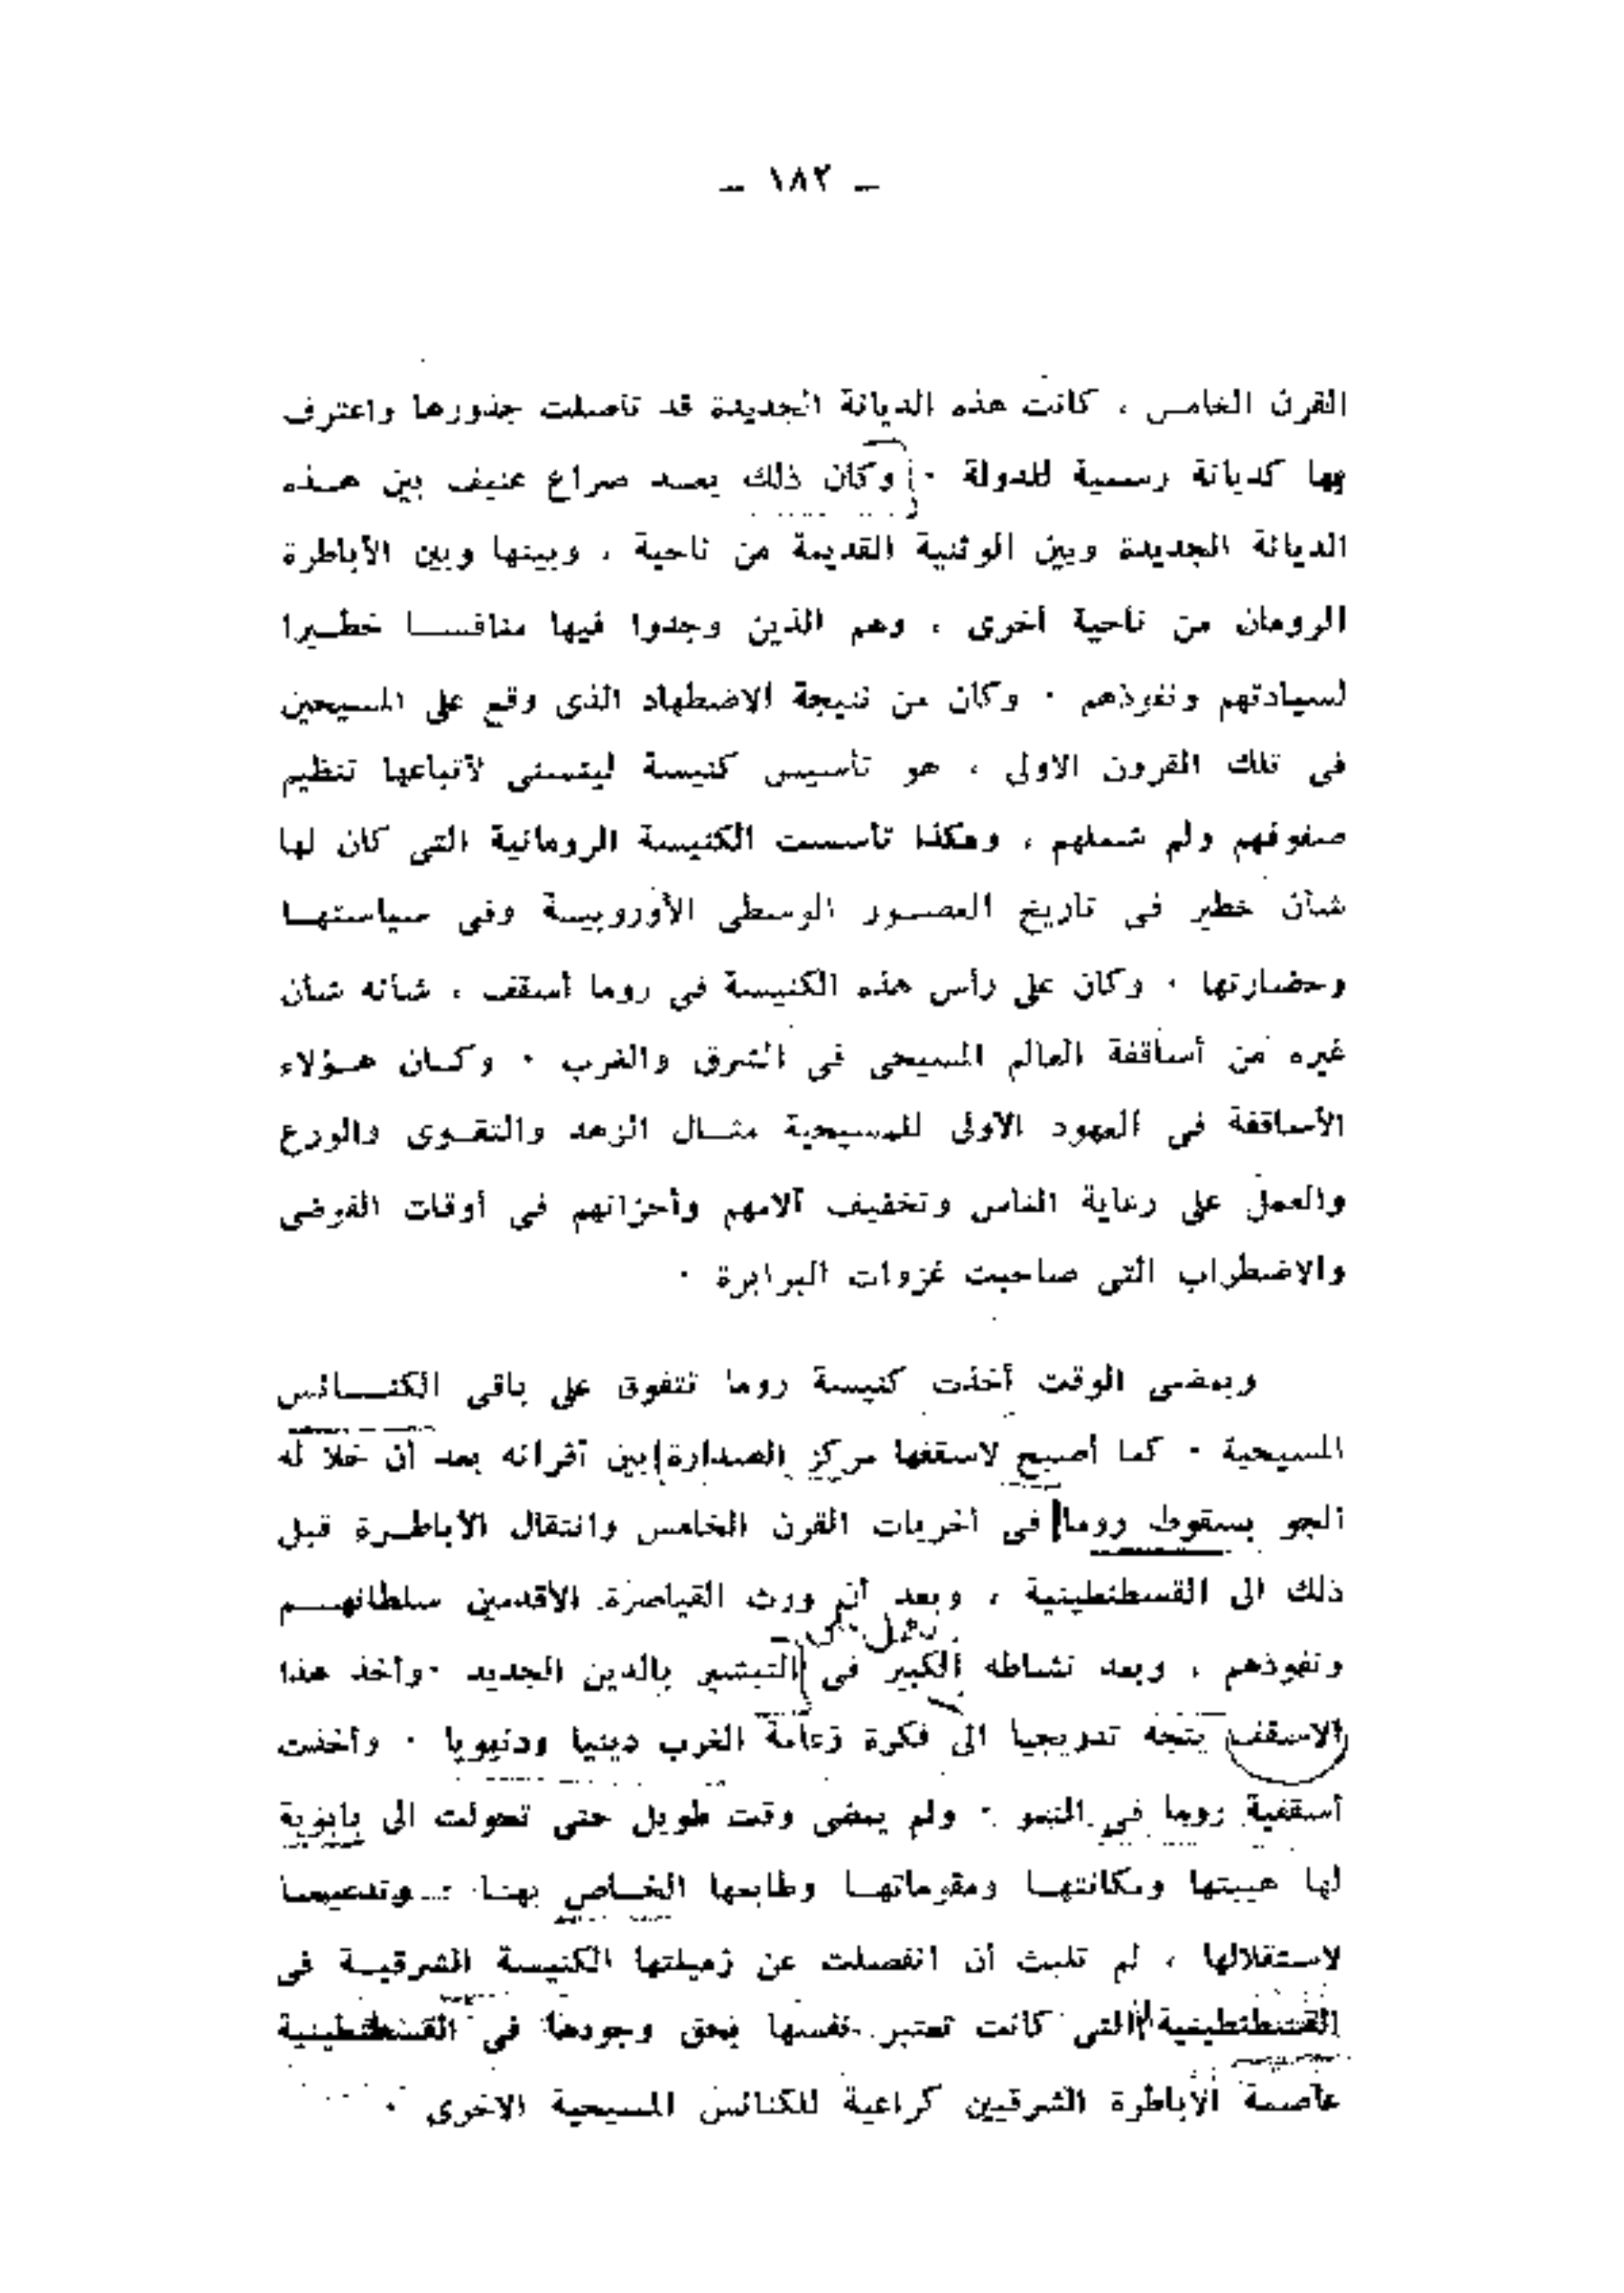 ـ ١٨٢ ـ
القرن الخامس ، كانت هذه الديانة الجديدة قد تأصلت جذورها واعترف
بها كديانة رسمية للدولة ٠ وكان ذلك بعد صراع عنيف بين هذه
الديانة الجديدة وبين الوثنية القديمة من ناحية ، وبينها وبين الأباطرة
الرومان من ناحية أخرى ، وهم الذين وجدوا فيها منافسا خطيرا
لسيادتهم ونفوذهم ٠ وكان من نتيجة الاضطهاد الذى وقع على المسيحيين
فى تلك القرون الاولى ، هو تأسيس كنيسة ليتسنى لأتباعها تنظيم
صفوفهم ولم شملهم ، وهكذا تأسست الكنيسة الرومانية التى كان لها
شأن خطير فى تاريخ العصور الوسطى الأوروبية وفى سياستها
وحضارتها ٠ وكان على رأس هذه الكنيسة فى روما أسقف ، شأنه شأن
غيره من أساقفة العالم المسيحى فى الشرق والغرب ٠ وكان هؤلاء
الأساقفة فى العهود الاولى للمسيحية مثال الزهد والتقوى والورع
والعمل على رعاية الناس وتخفيف آلامهم وأحزانهم فى أوقات الفوضى
والاضطراب التى صاحبت غزوات البرابرة ٠
وبمضى الوقت أخذت كنيسة روما تتفوق على باقى الكنائس
المسيحية ٠ كما أصبح لاسقفها مركز الصدارة بين أقرانه بعد أن خلا له
الجو بسقوط روما فى أخريات القرن الخامس وانتقال الأباطرة قبل
ذلك الى القسطنطينية ، وبعد أن ورث القياصرة الأقدمين سلطانهم
ونفوذهم ، وبعد نشاطه الكبير فى التبشير بالدين الجديد ٠ وأخذ هذا
الاسقف يتجه تدريجيا الى فكرة زعامة الغرب دينيا ودنيويا ٠ وأخذت
أسقفية روما فى النمو ٠ ولم يمضى وقت طويل حتى تحولت الى بابوية
لها هيبتها ومكانتها ومقوماتها وطابعها الخاص بها ٠ وتدعيما
لاستقلالها ، لم تلبث أن انفصلت عن زميلتها الكنيسة الشرقية فى
القسطنطينية التى كانت تعتبر نفسها بحق وجودها فى القسطنطينية
عاصمة الأباطرة الشرقيين كراعية للكنائس المسيحية الاخرى ٠